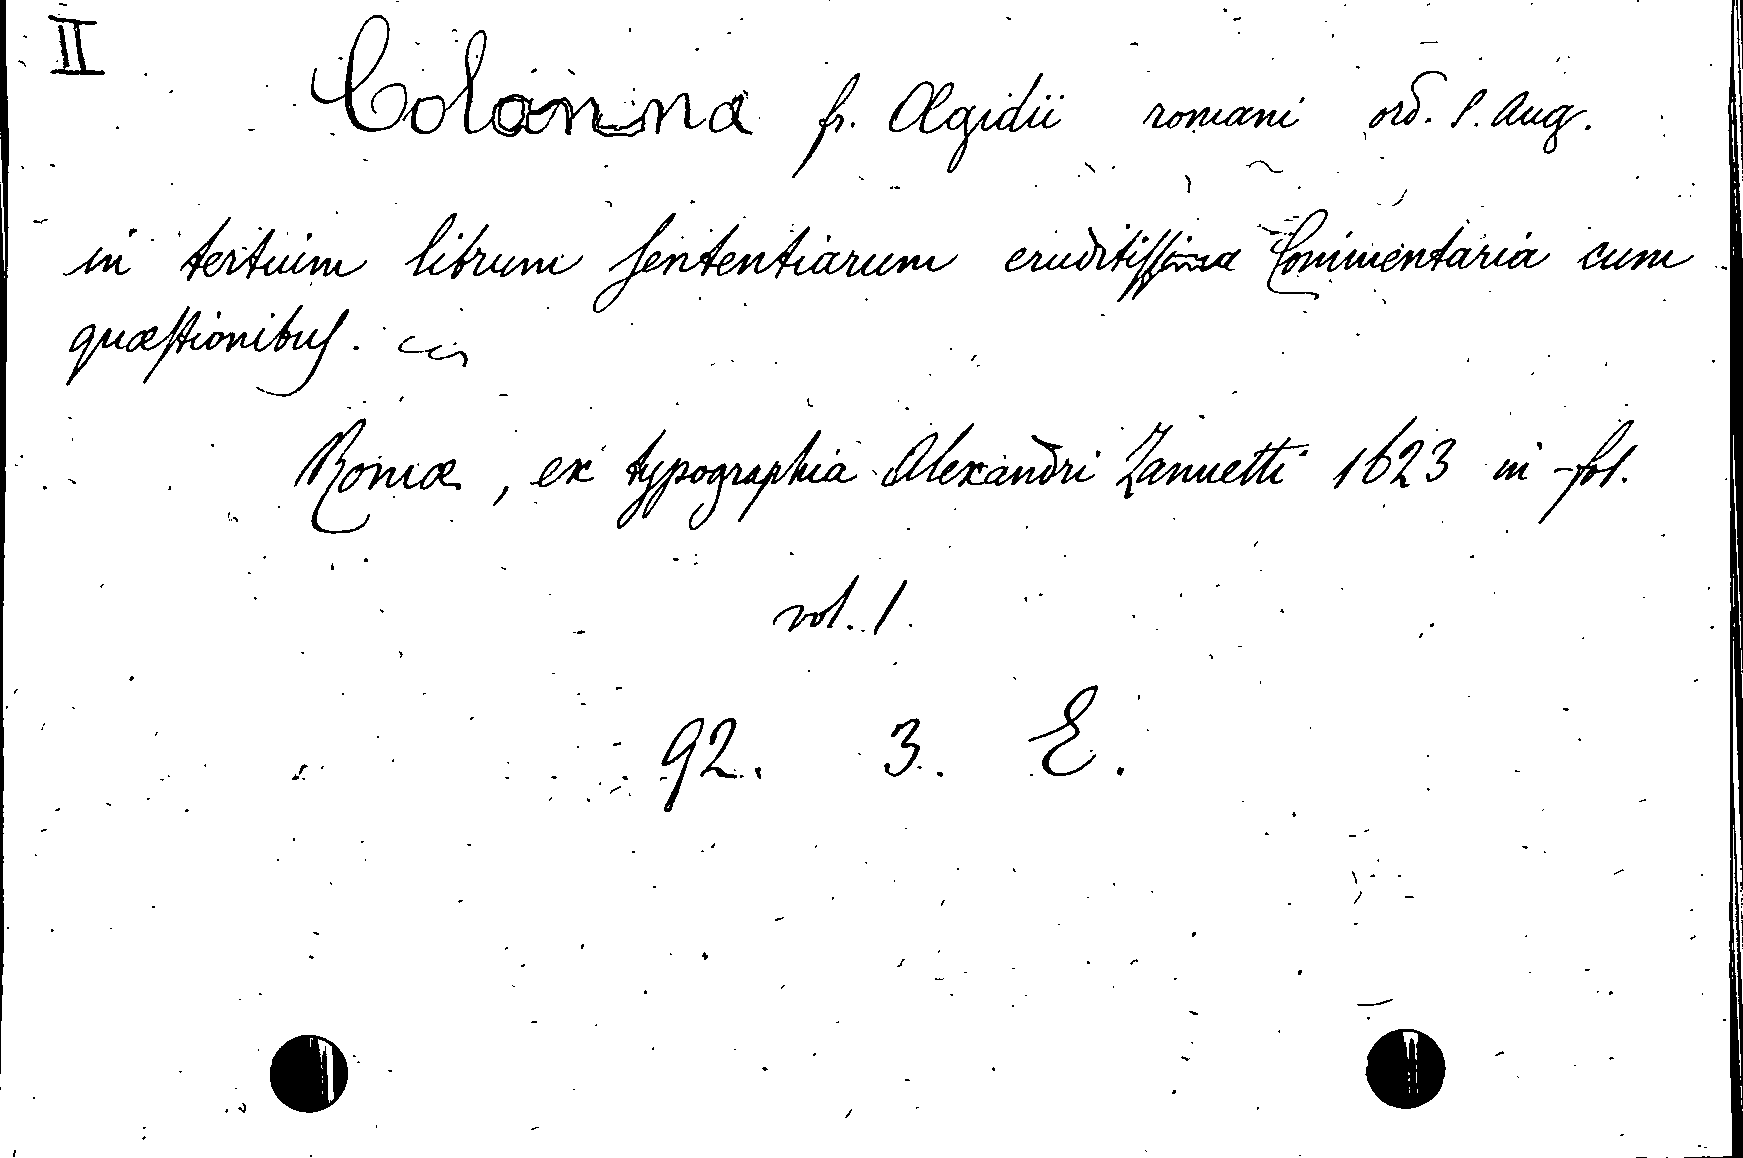 II
Colonna fr. Ægidii romani ord. S. Aug.
in tertium librum sententiarum eruditissima Commentaria cum
quæstionibus.
Romæ, ex typographia Alexandri Zannetti 1623 in-fol.
vol. 1.
92. 3. E.